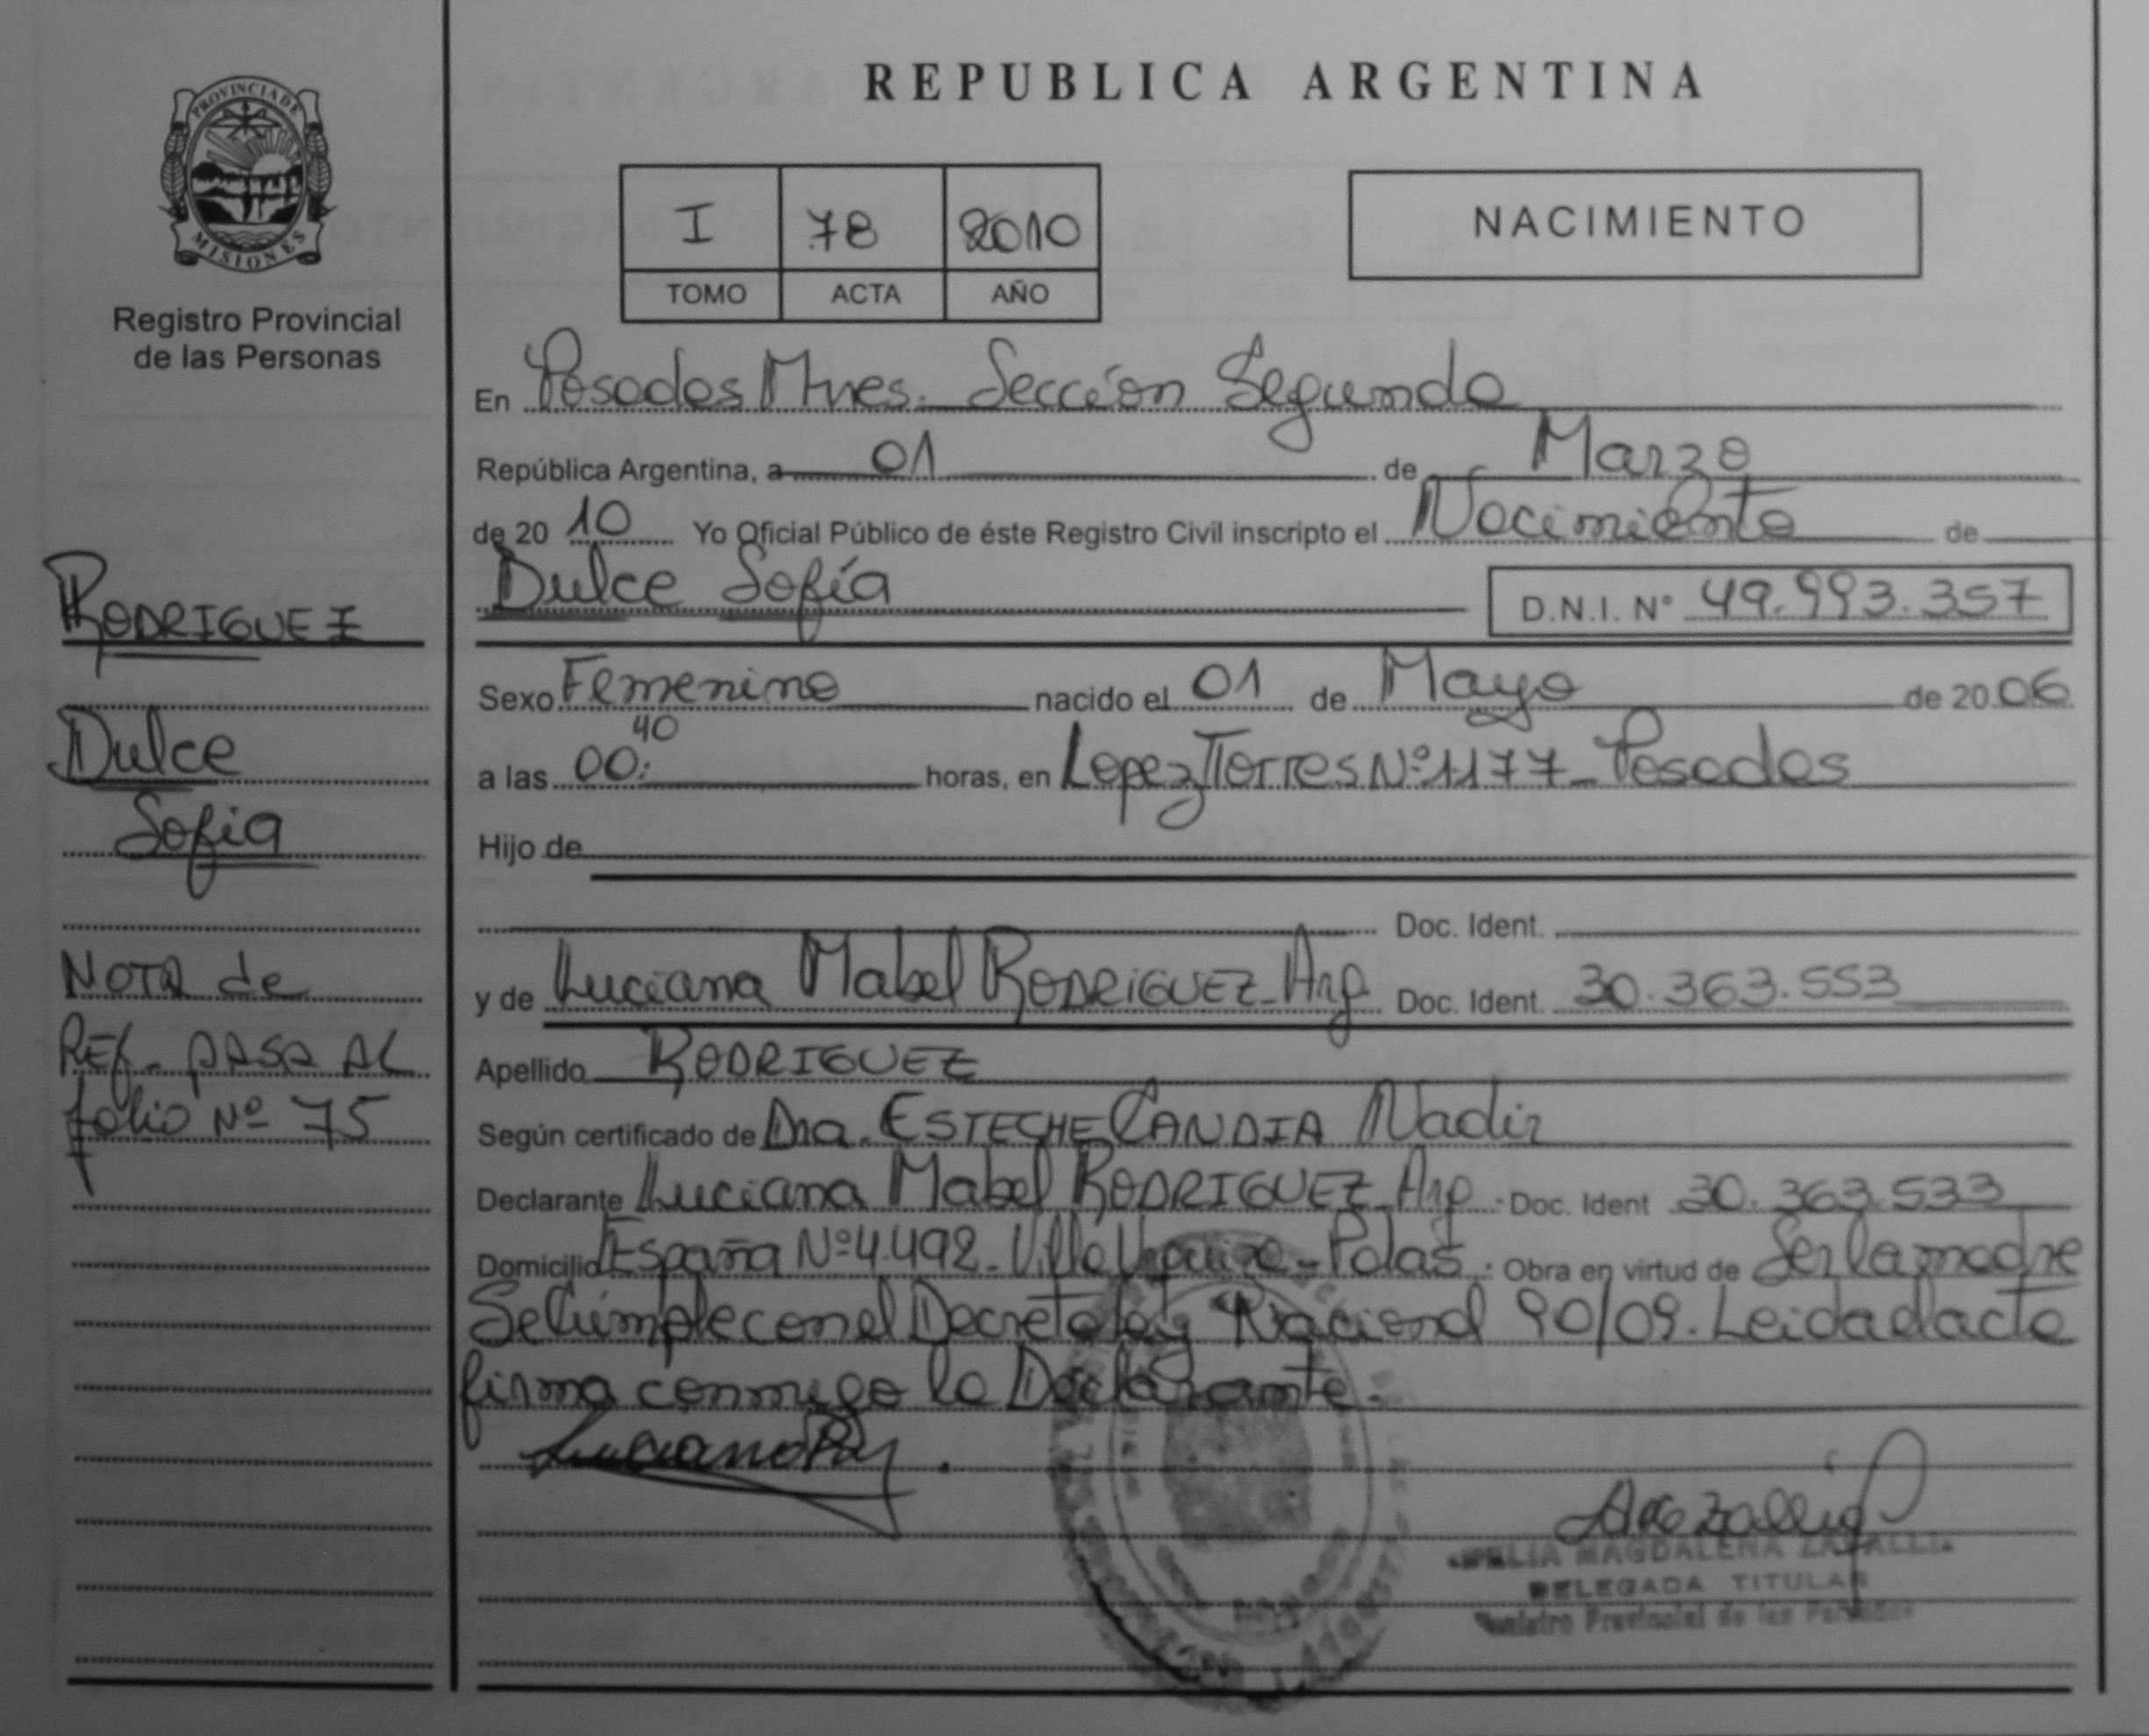 REPUBLICA ARGENTINA
PROVINCIA DE
MISIONES
Registro Provincial
de las Personas
I 78 2010
TOMO ACTA AÑO
NACIMIENTO
En Posadas Mnes. Sección Segunda
República Argentina, a 01 de Marzo
de 20 10 Yo Oficial Público de éste Registro Civil inscripto el Nacimiento de
Dulce Sofía D.N.I. Nº 49.993.357
Sexo Femenino nacido el 01 de Mayo de 20 06
a las 00:40 horas, en Lopez Torres Nº 1177 - Posadas
Hijo de
Doc. Ident.
y de Luciana Mabel RODRIGUEZ - Arg. Doc. Ident. 30.363.553
Apellido RODRIGUEZ
Según certificado de Dra. ESTECHE CANDIA Nadir
Declarante Luciana Mabel RODRIGUEZ - Arg. Doc. Ident 30.363.533
Domicilio España Nº 4.492 - Villa - Pdas. Obra en virtud de Ser la madre
Se Cumple con el Decreto Ley Nacional 90/09. Leida el acta
firma conmigo la Declarante.
RODRIGUEZ
Dulce
Sofía
NOTA de
REF. PASA AL
folio Nº 75
MAGDALENA
DELEGADA TITULAR
Registro Provincial de las Personas